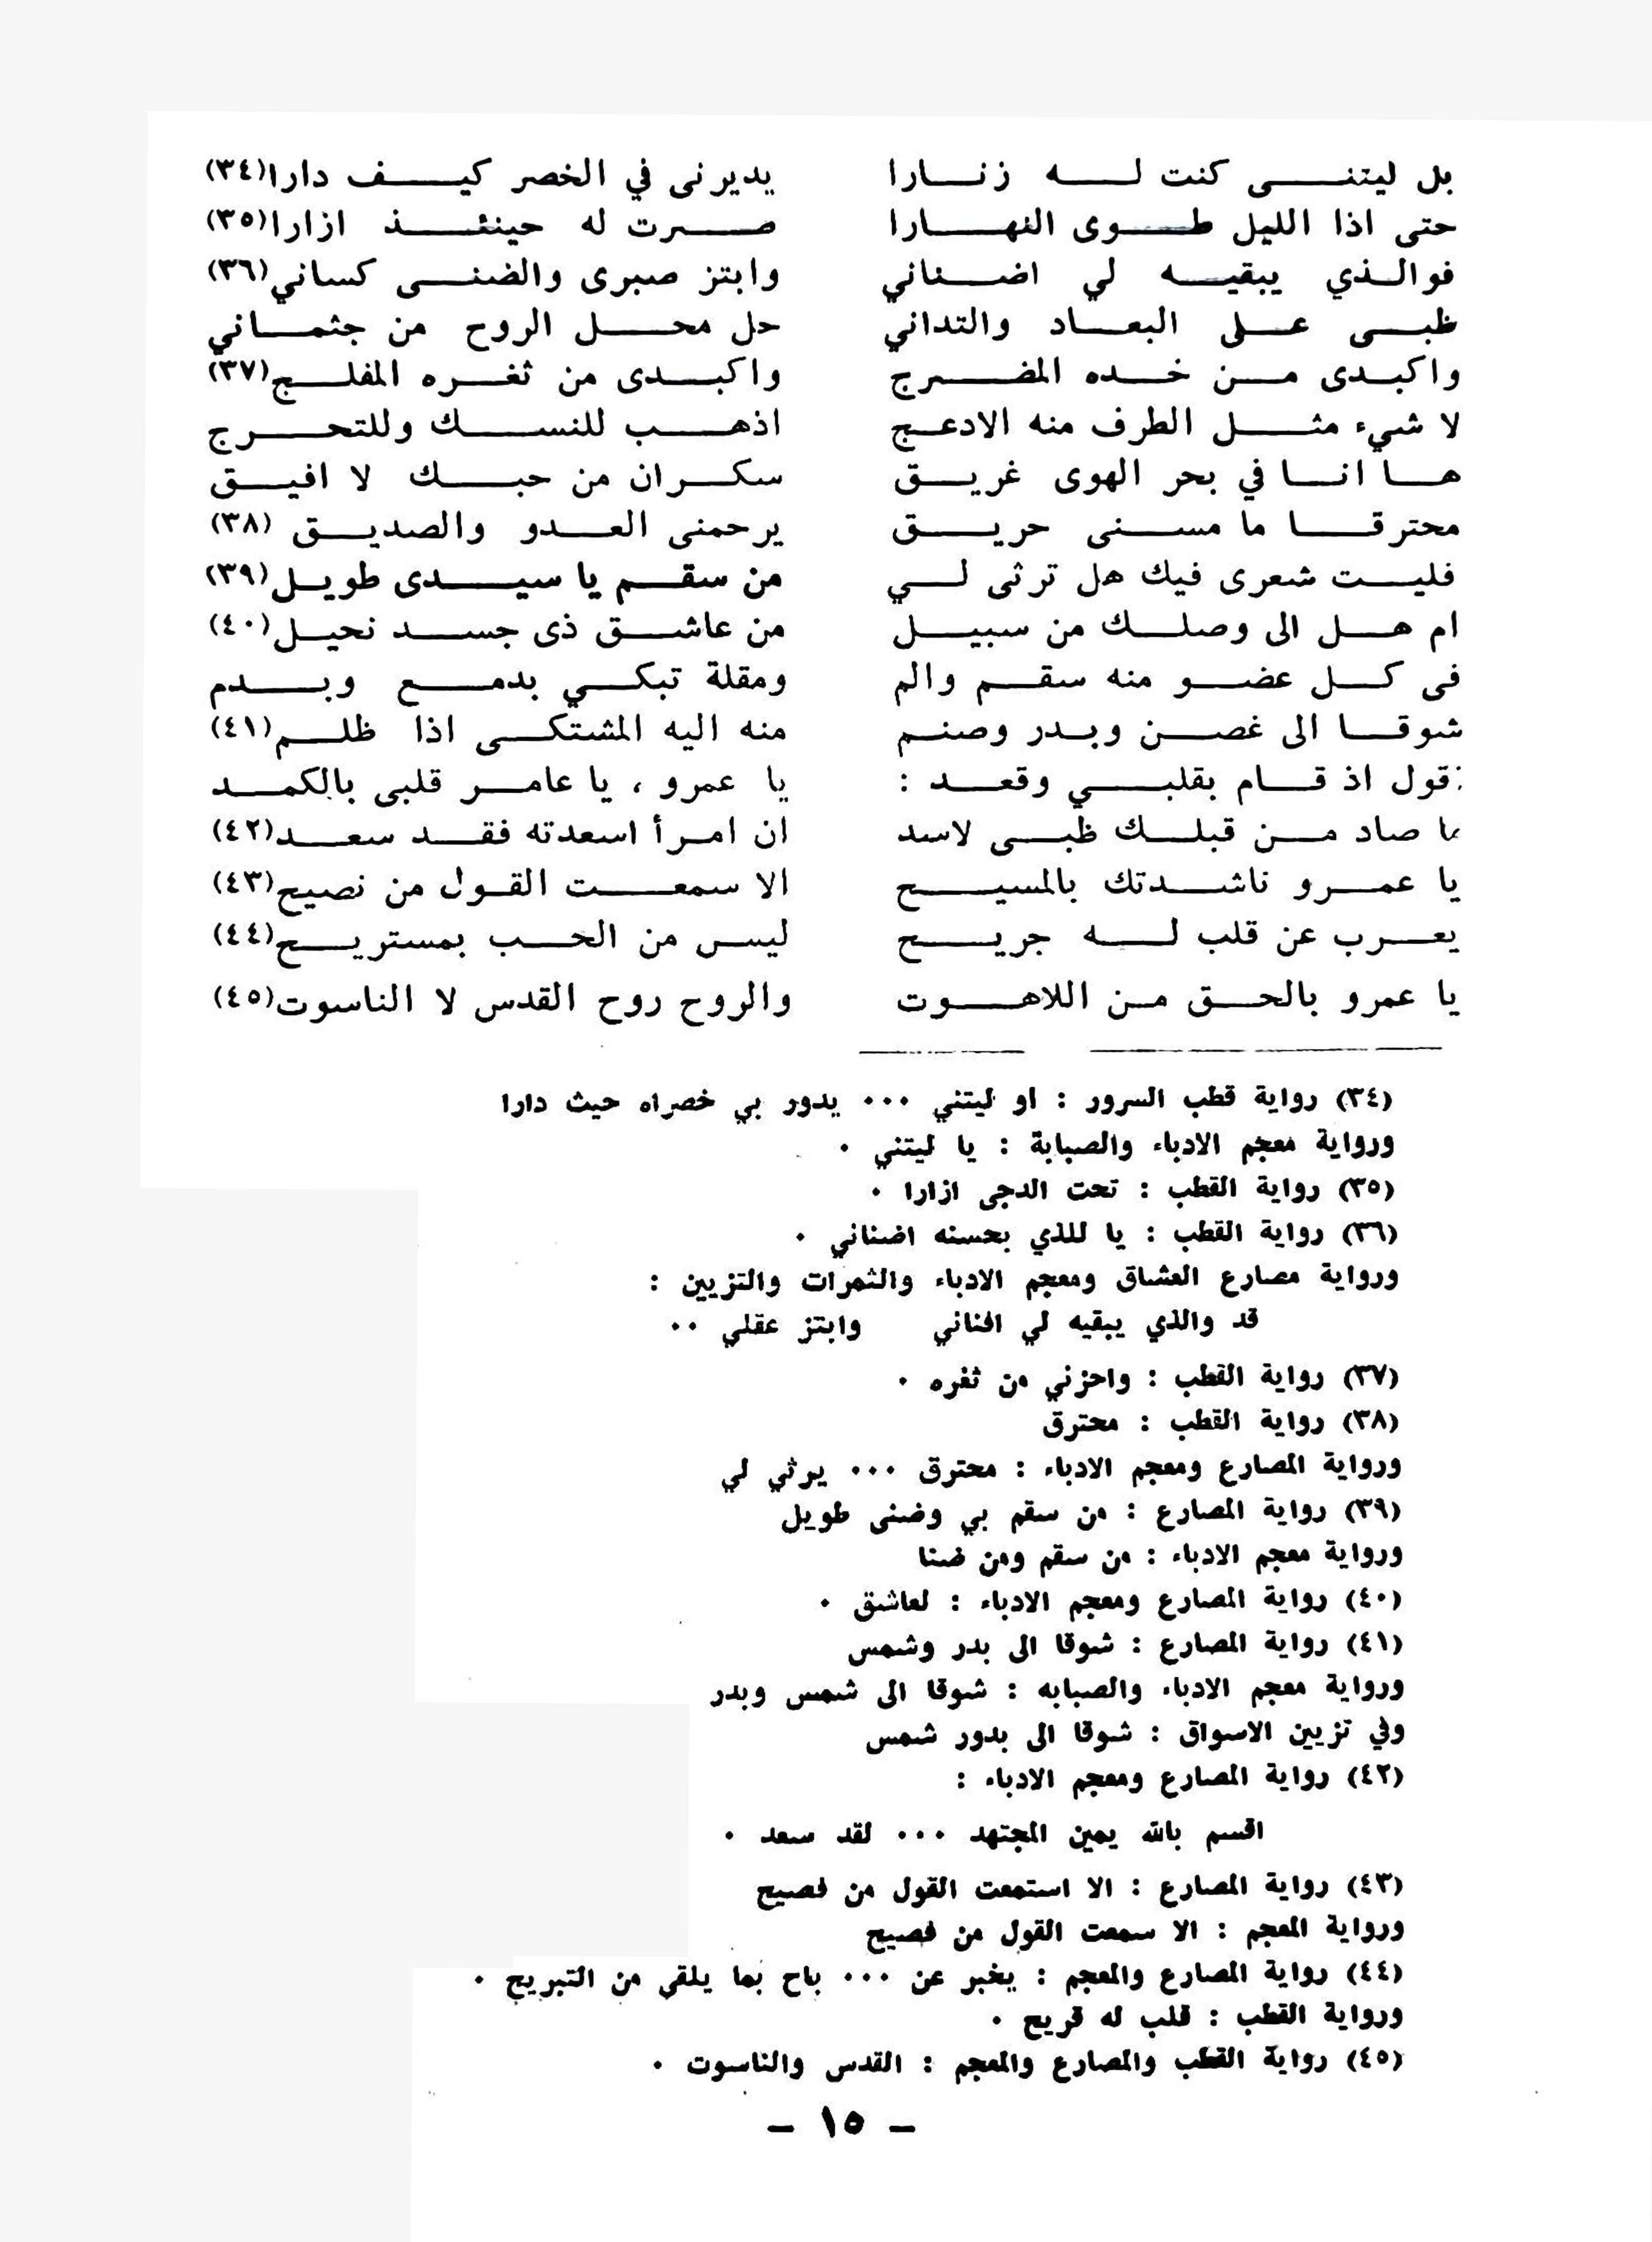 بل ليتنى كنت له زنارا يديرنى في الخصر كيف دارا(٣٤)
حتى اذا الليل طوى النهارا صرت له حينئذ ازارا(٣٥)
فوالذي يبقيه لي اضناني وابتز صبرى والضنى كساني(٣٦)
ظبى على البعاد والتداني حل محل الروح من جثماني
واكبدى من خده المضرج واكبدى من ثغره المفلج(٣٧)
لا شيء مثل الطرف منه الادعج اذهب للنسك وللتحرج
ها انا في بحر الهوى غريق سكران من حبك لا افيق
محترقا ما مسنى حريق يرحمنى العدو والصديق (٣٨)
فليت شعرى فيك هل ترثى لي من سقم يا سيدى طويل(٣٩)
ام هل الى وصلك من سبيل من عاشق ذى جسد نحيل(٤٠)
فى كل عضو منه سقم والم ومقلة تبكي بدمع وبدم
شوقا الى غصن وبدر وصنم منه اليه المشتكى اذا ظلم(٤١)
قول اذ قام بقلبي وقعد : يا عمرو ، يا عامر قلبى بالكمد
ما صاد من قبلك ظبى لاسد ان امرأ اسعدته فقد سعد(٤٢)
يا عمرو ناشدتك بالمسيح الا سمعت القول من نصيح(٤٣)
يعرب عن قلب له جريح ليس من الحب بمستريح(٤٤)
يا عمرو بالحق من اللاهوت والروح روح القدس لا الناسوت(٤٥)
(٣٤) رواية قطب السرور : او ليتني ٠٠٠ يدور بي خصراه حيث دارا
ورواية معجم الادباء والصبابة : يا ليتني ٠
(٣٥) رواية القطب : تحت الدجى ازارا ٠
(٣٦) رواية القطب : يا للذي بحسنه اضناني ٠
ورواية مصارع العشاق ومعجم الادباء والثمرات والتزيين :
قد والذي يبقيه لي افناني وابتز عقلي ٠٠
(٣٧) رواية القطب : واحزني من ثغره ٠
(٣٨) رواية القطب : محترق
ورواية المصارع ومعجم الادباء : محترق ٠٠٠ يرثي لي
(٣٩) رواية المصارع : من سقم بي وضنى طويل
ورواية معجم الادباء : من سقم ومن ضنا
(٤٠) رواية المصارع ومعجم الادباء : لعاشق ٠
(٤١) رواية المصارع : شوقا الى بدر وشمس
ورواية معجم الادباء والصبابه : شوقا الى شمس وبدر
وفي تزيين الاسواق : شوقا الى بدور شمس
(٤٢) رواية المصارع ومعجم الادباء :
اقسم بالله يمين المجتهد ٠٠٠ لقد سعد ٠
(٤٣) رواية المصارع : الا استمعت القول من فصيح
ورواية المعجم : الا سمعت القول من فصيح
(٤٤) رواية المصارع والمعجم : يخبر عن ٠٠٠ باح بما يلقى من التبريح ٠
ورواية القطب : قلب له قريح ٠
(٤٥) رواية القطب والمصارع والمعجم : القدس والناسوت ٠
– ١٥ –